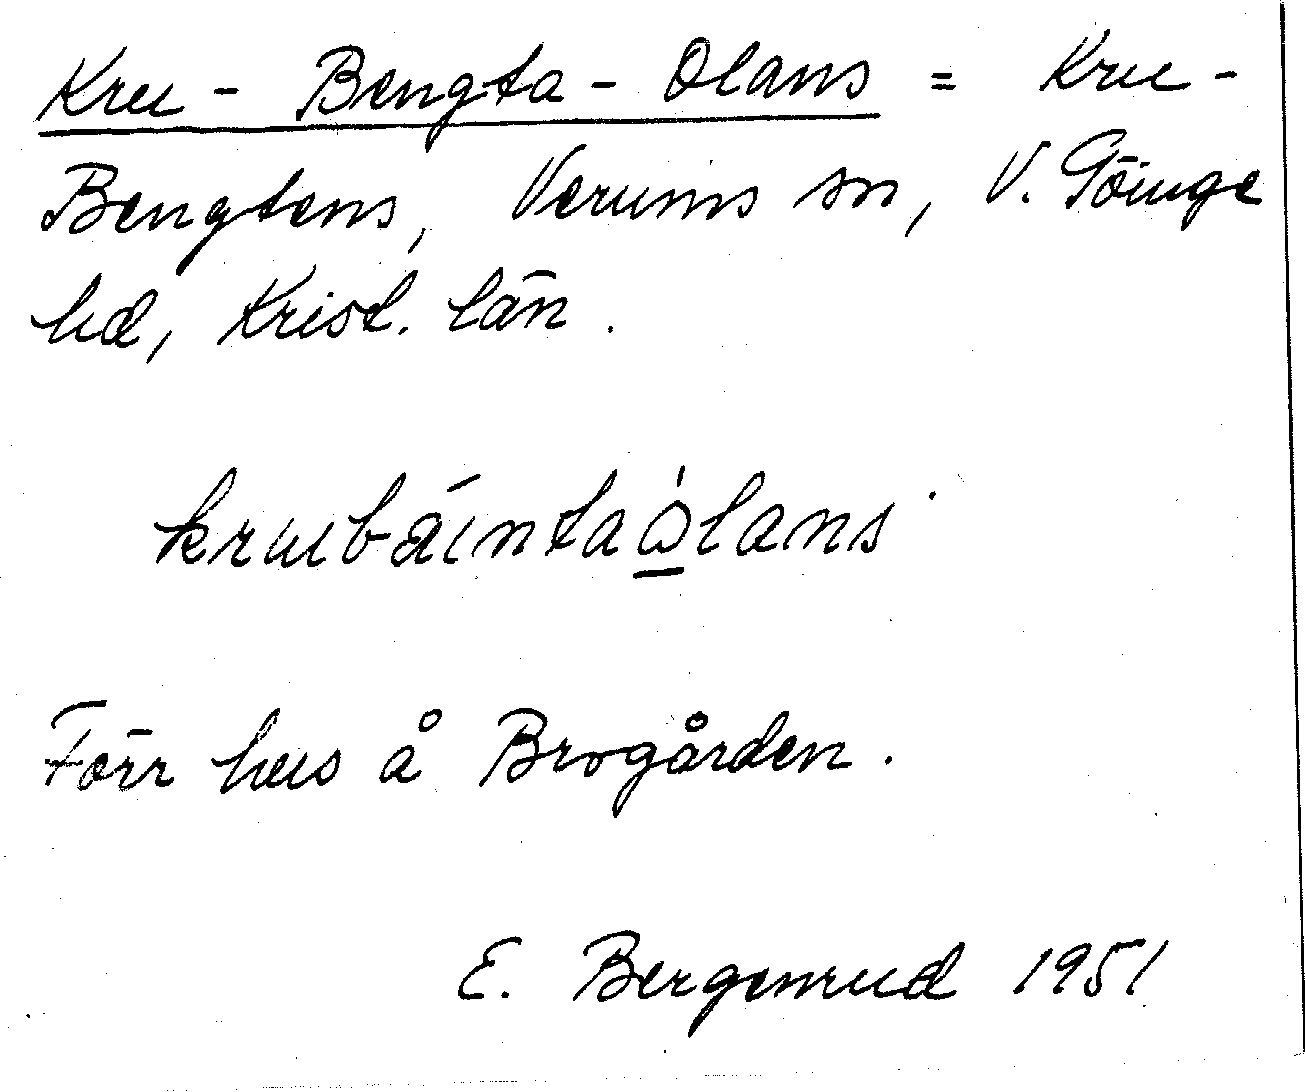 Kru - Bengta - Olans = Kru -
Bengtens, Verums sn, V. Göinge
hd, Krist. län.
krubäíntao̲̍lans
Förr hus å Brogården.
E. Bergenrud 1951